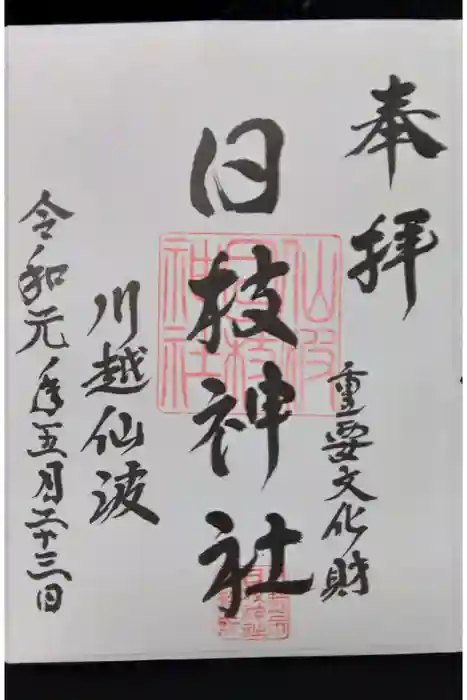 奉拝
重要文化財
日枝神社
仙波
日枝
神社
川越仙波
令和元年五月二十三日